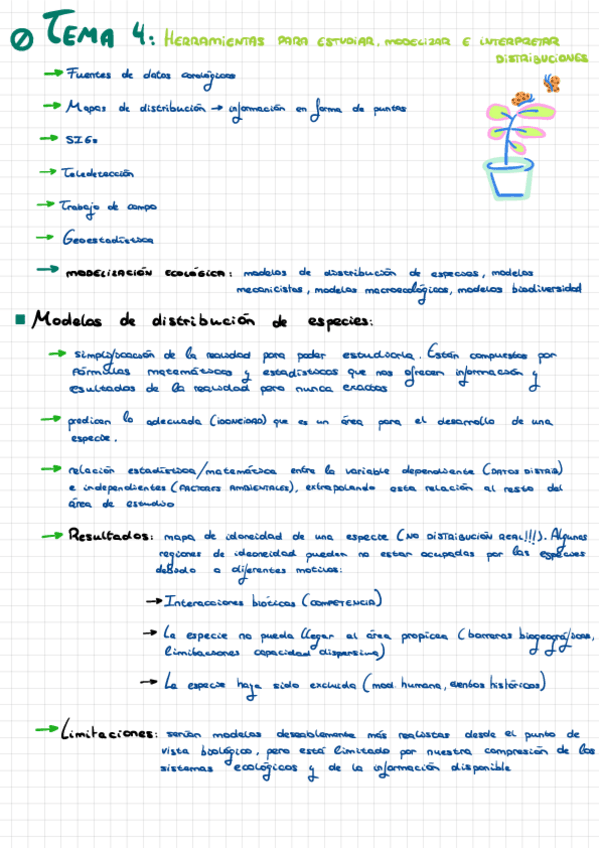 TEMA 4: HERRAMIENTAS PARA ESTUDIAR, MODELIZAR E INTERPRETAR
DISTRIBUCIONES
→ Fuentes de datos corológicos
→ Mapas de distribución → información en forma de puntos
→ SIGs
→ Teledetección
→ Trabajo de campo
→ Geoestadística
→ MODELIZACIÓN ECOLÓGICA: modelos de distribución de especies, modelos
mecanicistas, modelos macroecológicos, modelos biodiversidad
Modelos de distribución de especies:
→ simplificación de la realidad para poder estudiarla. Están compuestos por
fórmulas matemáticas y estadísticas que nos ofrecen información y
resultados de la realidad pero nunca exactos
→ predicen lo adecuada (IDONEIDAD) que es un área para el desarrollo de una
especie.
→ relación estadística/matemática entre la variable dependiente (DATOS DISTRIB)
e independientes (FACTORES AMBIENTALES), extrapolando esta relación al resto del
área de estudio
→ Resultados: mapa de idoneidad de una especie (NO DISTRIBUCIÓN REAL!!!). Algunas
regiones de ideoneidad pueden no estar ocupadas por las especies
debido a diferentes motivos:
→ Interacciones bióticas (COMPETENCIA)
→ La especie no pueda llegar al área propicia (barreras biogeográficas,
limitaciones capacidad dispersiva)
→ La especie haya sido excluida (mod. humana, eventos históricos)
→ Limitaciones: serían modelos deseablemente más realistas desde el punto de
vista biológico, pero está limitado por nuestra compresión de los
sistemas ecológicos y de la información disponible